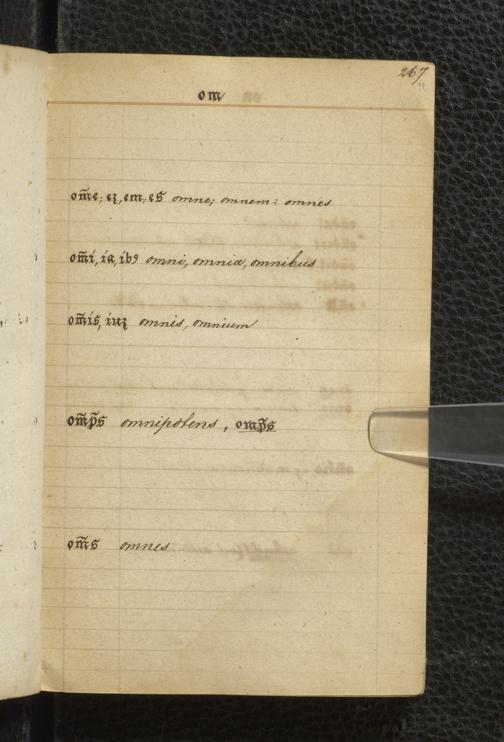 267
om
om̃e; eʒ, em, es̃ omne; omnem: omnes
om̃i, ia, ibꝰ omni, omnia, omnibus
om̃is, iuʒ omnis, omnium
om̃p̃s omnipotens, omp̃s
om̃s omnes